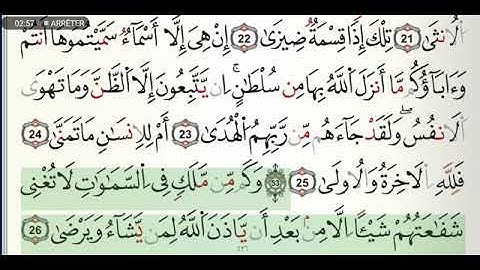 02:57 ■ ARRÊTER
اَ۬لُانث۪يٰ 21 تِلْكَ إِذاٗ قِسْمَةٞ ضِيز۪يٰٓ 22 إِنْ هِيَ إِلَّآ أَسْمَآءٞ سَمَّيْتُمُوهَآ أَنتُمْ
وَءَابَآؤُكُم مَّآ أَنزَلَ اَ۬للَّهُ بِهَا مِن سُلْطَٰنٍۖ اِنْ يَّتَّبِعُونَ إِلَّا اَ۬لظَّنَّ وَمَا تَهْوَي
اَ۬لَانفُسُۖ وَلَقَدْ جَآءَهُم مِّن رَّبِّهِمُ اُ۬لْهُد۪يٰٓ 23 أَمْ لِلِانسَٰنِ مَا تَمَنّ۪يٰ 24
فَلِلهِ اِ۬لَاخِرَةُ وَالُاول۪يٰ 25 53 وَكَم مِّن مَّلَكٖ فِے اِ۬لسَّمَٰوَٰتِ لَا تُغْنِے
شَفَٰعَتُهُمْ شَيْـٔاً اِلَّا مِنۢ بَعْدِ أَنْ يَّاذَنَ اَ۬للَّهُ لِمَنْ يَّشَآءُ وَيَرْض۪يٰٓ 26